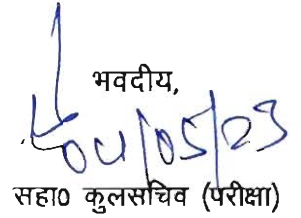 भवदीय,
04/05/23
सहा0 कुलसचिव (परीक्षा)